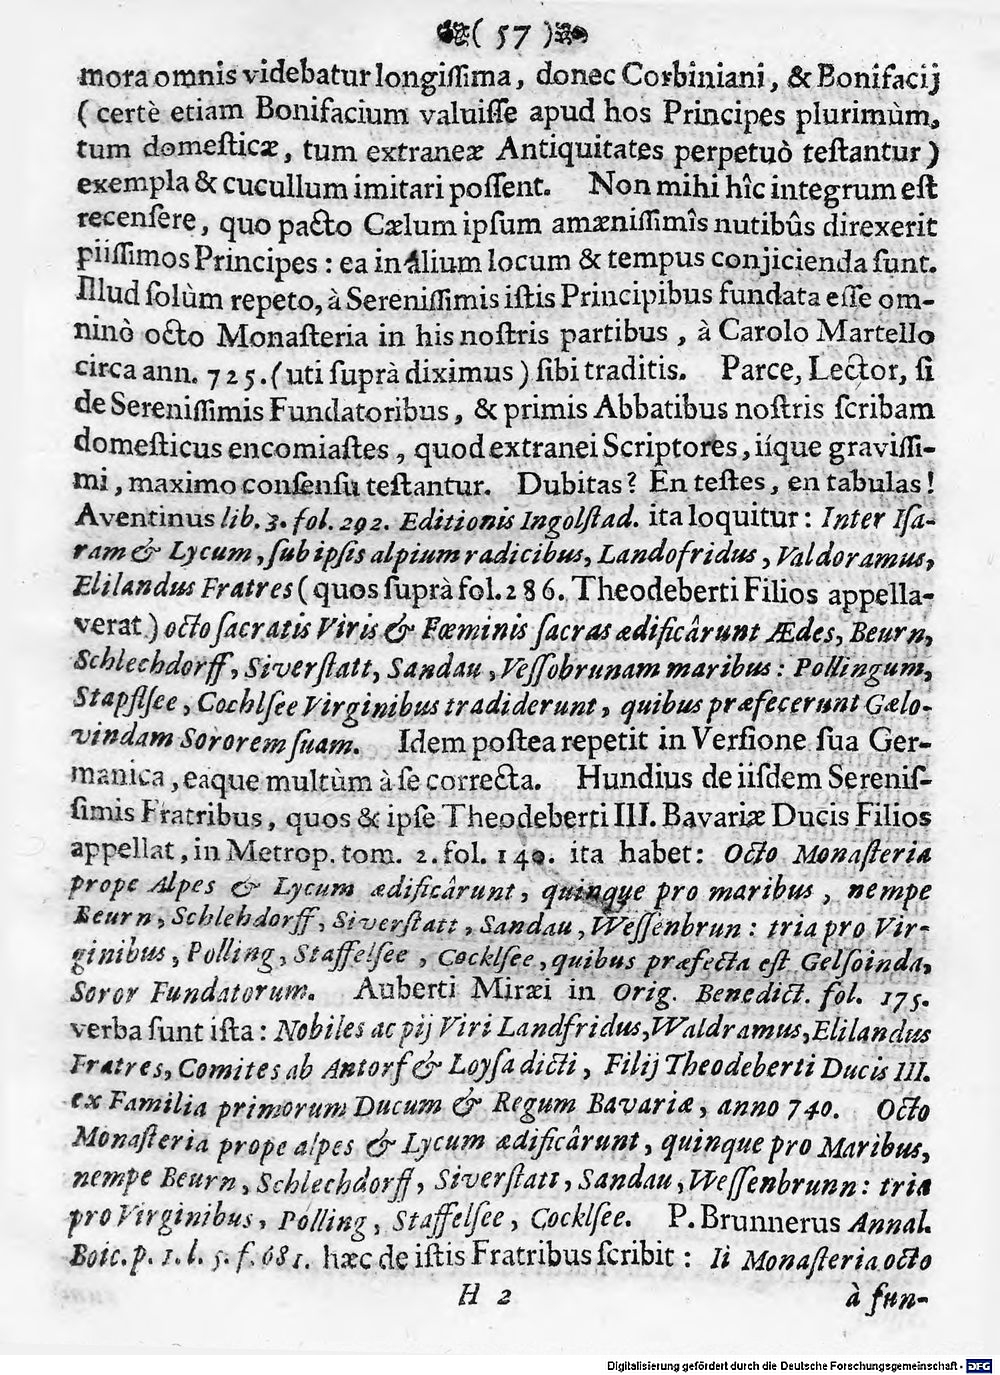 ( 57 )
mora omnis videbatur longiſſima, donec Corbiniani, & Bonifacij
( certè etiam Bonifacium valuiſſe apud hos Principes plurimùm,
tum domeſticæ, tum extraneæ Antiquitates perpetuò teſtantur )
exempla & cucullum imitari poſſent. Non mihi hîc integrum eſt
recenſere, quo pacto Cælum ipſum amænisſimîs nutibûs direxerit
piiſſimos Principes : ea in alium locum & tempus conjicienda ſunt.
Illud ſolùm repeto, à Sereniſſimis iſtis Principibus fundata eſſe om-
ninò octo Monaſteria in his noſtris partibus , à Carolo Martello
circa ann. 725. ( uti ſuprà diximus ) ſibi traditis. Parce, Lector, ſi
de Sereniſſimis Fundatoribus, & primis Abbatibus noſtris ſcribam
domeſticus encomiaſtes , quod extranei Scriptores, iíque graviſſi-
mi , maximo conſenſu teſtantur. Dubitas? En teſtes, en tabulas!
Aventinus lib. 3. fol. 292. Editionis Ingolſtad. ita loquitur : Inter Iſa-
ram & Lycum, ſub ipſis alpium radicibus, Landofridus, Valdoramus,
Elilandus Fratres ( quos ſuprà fol. 286. Theodeberti Filios appella-
verat ) octo ſacratis Viris & Fœminis ſacras ædificârunt Ædes, Beurn,
Schlechdorff, Siverſtatt, Sandau, Veſſobrunam maribus : Pollingum,
Stapflſee, Cochlſee Virginibus tradiderunt, quibus præfecerunt Gælo-
vindam Sororem ſuam. Idem poſtea repetit in Verſione ſua Ger-
manica, eaque multùm à ſe correcta. Hundius de iiſdem Sereniſ-
ſimis Fratribus, quos & ipſe Theodeberti III. Bavariæ Ducis Filios
appellat, in Metrop. tom. 2. fol. 140. ita habet : Octo Monaſteria
prope Alpes & Lycum ædificârunt, quinque pro maribus, nempe
Beurn, Schlehdorff, Siverſtatt, Sandau, Weſſenbrun : tria pro Vir-
ginibus, Polling, Staffelſee, Cocklſee, quibus præfecta eſt Gelſoinda,
Soror Fundatorum. Auberti Miræi in Orig. Benedict. fol. 175.
verba ſunt iſta : Nobiles ac pij Viri Landfridus, Waldramus, Elilandus
Fratres, Comites ab Antorf & Loyſa dicti, Filij Theodeberti Ducis III.
ex Familia primorum Ducum & Regum Bavariæ, anno 740. Octo
Monaſteria prope alpes & Lycum ædificârunt, quinque pro Maribus,
nempe Beurn, Schlechdorff, Siverſtatt, Sandau, Weſſenbrunn : tria
pro Virginibus, Polling, Staffelſee, Cocklſee. P. Brunnerus Annal.
Boic. p. 1. l. 5. f. 681. hæc de iſtis Fratribus ſcribit : Ii Monaſteria octo
H 2 à fun-
Digitalisierung gefördert durch die Deutsche Forschungsgemeinschaft - DFG